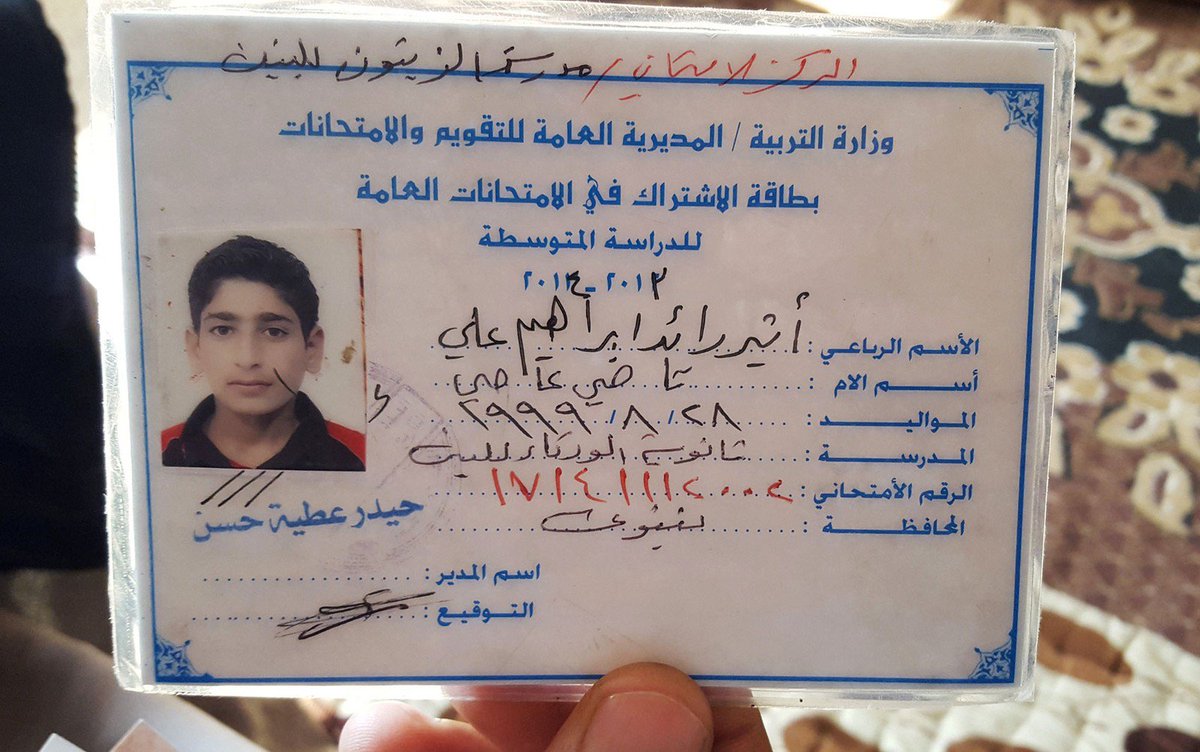 المركز الامتحاني / مدرسة الزيتون للبنين
وزارة التربية / المديرية العامة للتقويم والامتحانات
بطاقة الاشتراك في الامتحانات العامة
للدراسة المتوسطة
٢٠١٣ - ٢٠١٤
الأسم الرباعي : أثير رائد ابراهيم علي
أسم الام :
المواليد : ٢٨ / ٨ /
المدرسة : ثانوية للبنين
الرقم الأمتحاني :
المحافظة : نينوى
حيدر عطية حسن
اسم المدير :
التوقيع :